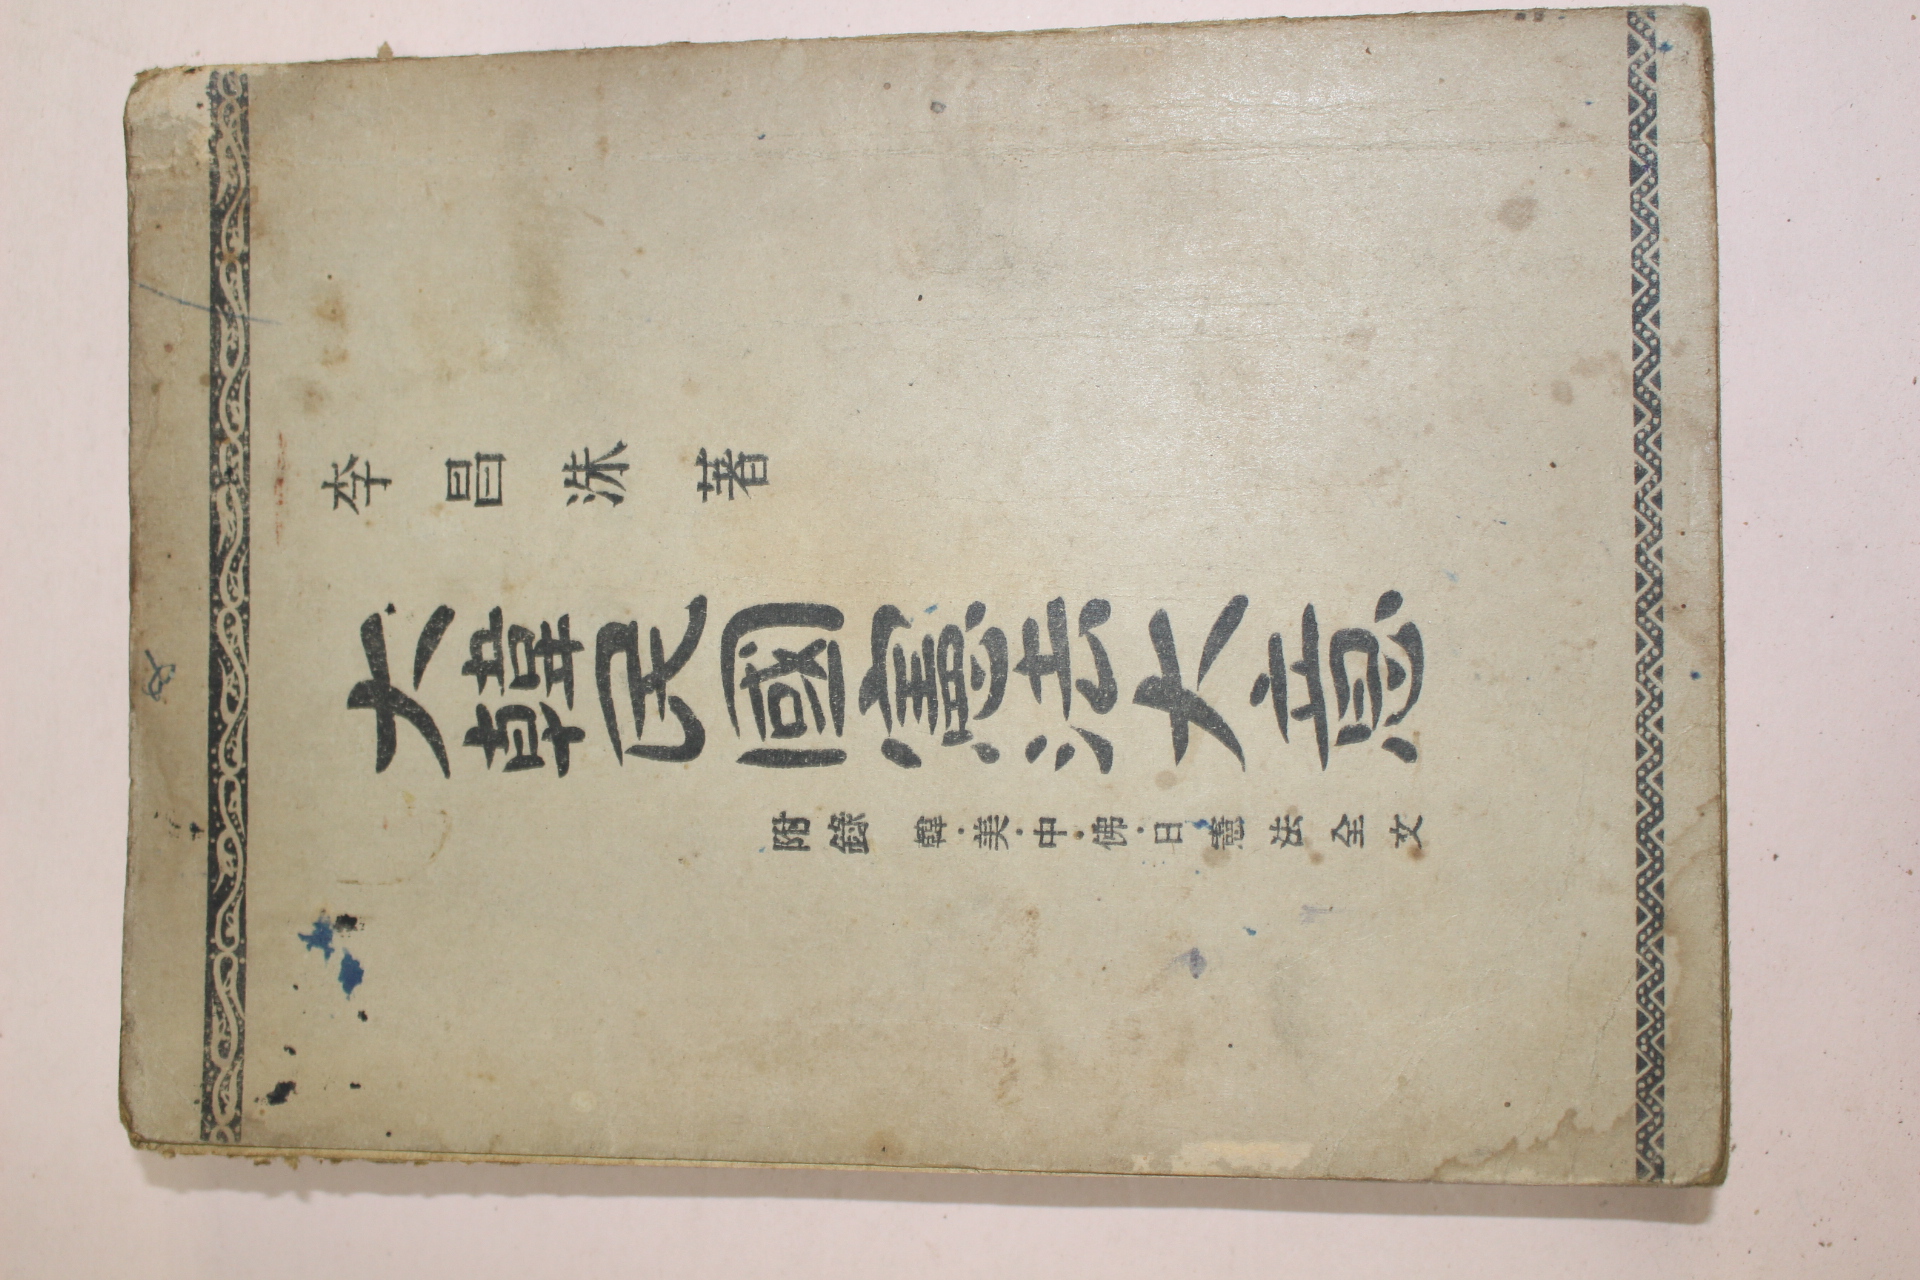 李昌洙著
大韓民國憲法大意
附錄 韓·美·中·佛·日憲法全文